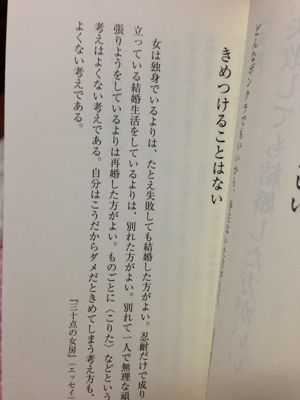 きめつけることはない
女は独身でいるよりは、たとえ失敗しても結婚した方がよい。忍耐だけで成り
立っている結婚生活をしているよりは、別れた方がよい。別れて一人で無理な頑
張りようをしているよりは再婚した方がよい。ものごとに〈こりた〉などという
考えはよくない考えである。自分はこうだからダメだときめてしまう考え方も、
よくない考えである。
『三十点の女房』(エッセイ)